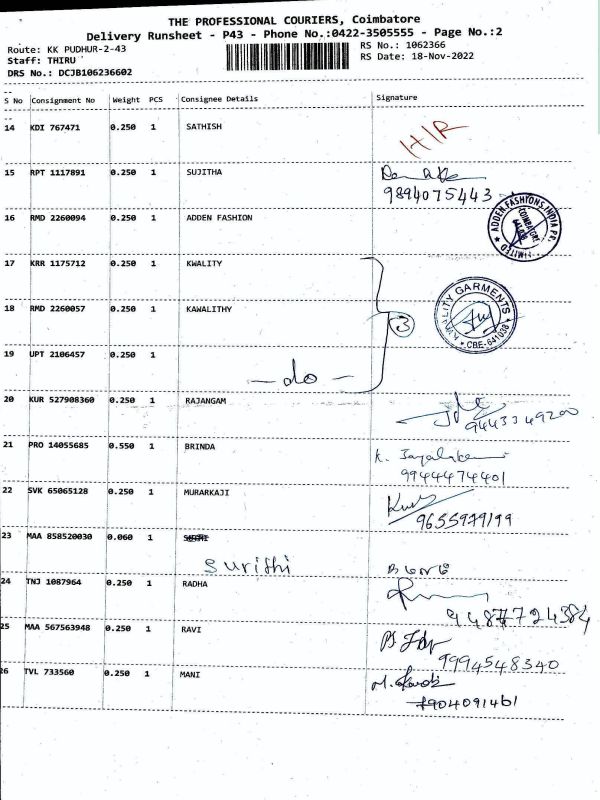 THE PROFESSIONAL COURIERS, Coimbatore
Delivery Runsheet - P43 - Phone No.:0422-3505555 - Page No.:2
Route: KK PUDHUR-2-43
RS No.: 1062366
Staff: THIRU
RS Date: 18-Nov-2022
DRS No.: DCJB106236602
S No Consignment No Weight PCS Consignee Details Signature
14 KDI 767471 0.250 1 SATHISH H/R
15 RPT 1117891 0.250 1 SUJITHA
9894075443
16 RMD 2260094 0.250 1 ADDEN FASHION
ADDEN FASHIONS INDIA PR. LIMITED
COIMBATORE
17 KRR 1175712 0.250 1 KWALITY
18 RMD 2260057 0.250 1 KAWALITHY 3
KWALITY GARMENTS
CBE-641038
19 UPT 2106457 0.250 1
- do -
20 KUR 527908360 0.250 1 RAJANGAM
9443349200
21 PRO 14055685 0.550 1 BRINDA
9944474401
22 SVK 65065128 0.250 1 MURARKAJI
23 MAA 858520030 0.060 1
Surithi
24 TNJ 1087964 0.250 1 RADHA
25 MAA 567563948 0.250 1 RAVI
9994548340
26 TVL 733560 0.250 1 MANI
7904091461